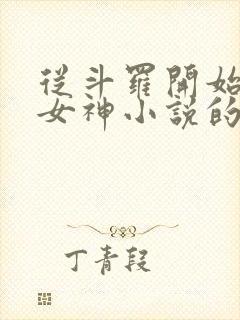 從斗羅開始
女神小說的
丁青段